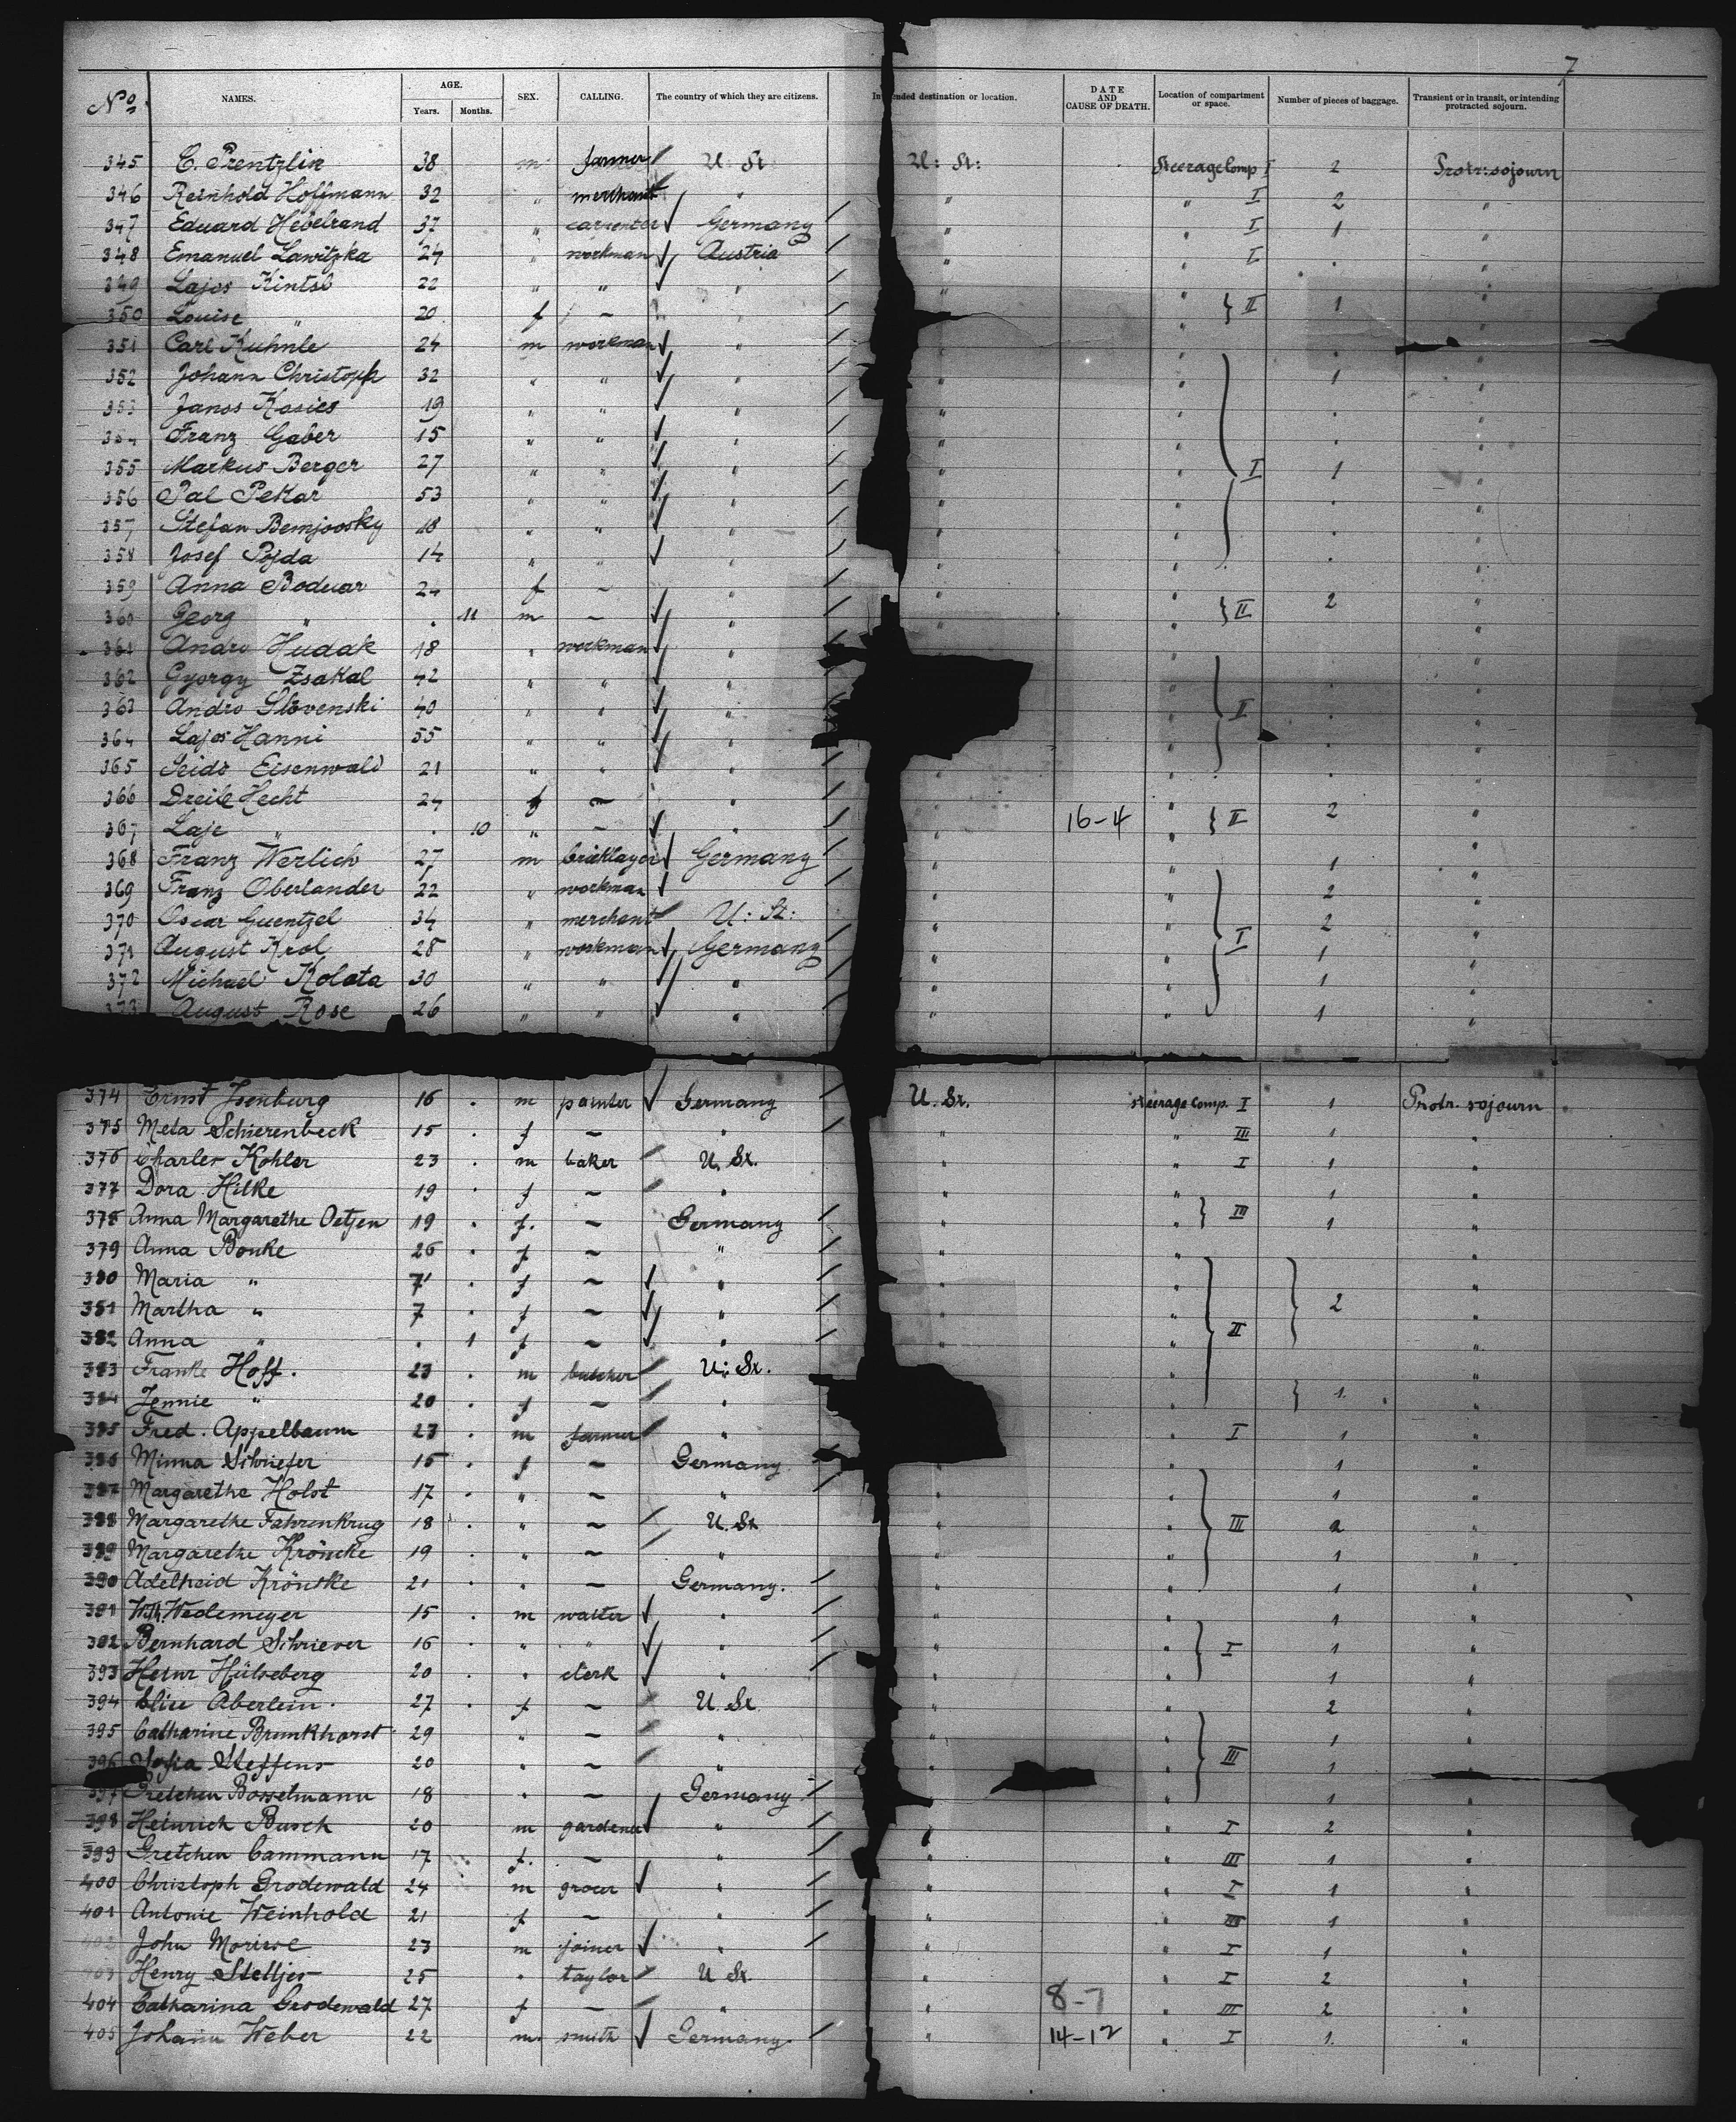 7
No. NAMES. AGE. Years. Months. SEX. CALLING. The country of which they are citizens. Intended destination or location. DATE AND CAUSE OF DEATH. Location of compartment or space. Number of pieces of baggage. Transient or in transit, or intending protracted sojourn.
345 C. Prentzlin 38 m farmer U. St U: St: Steerage Comp I 2 Protr: sojourn
346 Reinhold Hoffmann 32 " merchant " " " I 2 "
347 Eduard Hebelrand 37 " carpenter Germany " " I 1 "
348 Emanuel Lawitzka 24 " workman Austria " " I . "
349 Lajos Kintsl 22 " " " " "
350 Louise " 20 f – " " " } II 1 "
351 Carl Kuhnle 24 m workman " " " . "
352 Johann Christoph 32 " " " " " 1 "
353 Janos Kosics 19 " " " " " . "
354 Franz Gaber 15 " " " " " . "
355 Markus Berger 27 " " " " " I 1 "
356 Pal Pekar 53 " " " " " . "
357 Stefan Bemjoosky 18 " " " " " . "
358 Josef Pojda 14 " " " " " . "
359 Anna Boduar 24 f – " " "
360 Georg " . 11 m – " " " } II 2 "
361 Andro Hudak 18 " workman " " "
362 Gyorgy Zsakal 42 " " " " . "
363 Andro Slovenski 40 " " " " II . "
364 Lajos Hanni 55 " " " " . "
365 Seide Eisenwald 21 " " " " . "
366 Dreile Hecht 24 f – " " "
367 Laje " . 10 " – " " 16-4 " } II 2 "
368 Franz Werlich 27 m bricklayer Germany " " 1 "
369 Franz Oberlander 22 " workman " " 2 "
370 Oscar Guentzel 34 " merchant U: St: " " 2 "
371 August Krol 28 " workman Germany " " I 1 "
372 Michael Kolata 30 " " " " " 1 "
373 August Rose 26 " " " " " 1 "
374 Ernst Isenburg 16 . m painter Germany U. St. steerage comp. I 1 Protr. sojourn
375 Meta Schierenbeck 15 . f – " " " III 1 "
376 Charles Kohler 23 . m baker U. St. " " I 1 "
377 Dora Hilke 19 . f – " " " 1 "
378 Anna Margarethe Oetjen 19 . f. – Germany " " } III 1 "
379 Anna Bonke 26 . f – " " " "
380 Maria " 7 . f – " " " "
381 Martha " 7 . f – " " " 2 "
382 Anna " . 1 f – " " " II "
383 Franke Hoff. 23 . m butcher U. St. " "
384 Jennie " 20 . f – " " } 1 "
385 Fred. Appelbaum 23 . m farmer " " I 1 "
386 Minna Schriefer 15 . f – Germany " " 1 "
387 Margarethe Holst 17 . " – " " " 1 "
388 Margarethe Fahrenkrug 18 . " – U. St " " III 2 "
389 Margarethe Kröncke 19 . " – " " " 1 "
390 Adelheid Krönske 21 . " – Germany. " " 1 "
391 Wilh. Wedemeyer 15 . m waiter " " " 1 "
392 Bernhard Schriever 16 . " " " " " I 1 "
393 Heinr Hülseberg 20 . " clerk " " " 1 "
394 Elise Aberlein. 27 . f – U. St " " 2 "
395 Catharine Brunkhorst 29 " – " " " 1 "
396 Sofia Steffens 20 " – " " " III 1 "
397 Gretchen Bösselmann 18 " – Germany " 1 "
398 Heinrich Busch 20 m gardener " " " I 2 "
399 Gretchen Cammann 17 f. – " " " III 1 "
400 Christoph Grodewald 24 m grocer " " " I 1 "
401 Antonie Weinhold 21 f – " " " III 1 "
402 John Morisse 23 m joiner " " " I 1 "
403 Henry Stelljes 25 " taylor U St " " I 2 "
404 Catharina Grodewald 27 f – " " 8-7 " III 2 "
405 Johann Weber 22 m. smith Germany " 14-12 " I 1. "